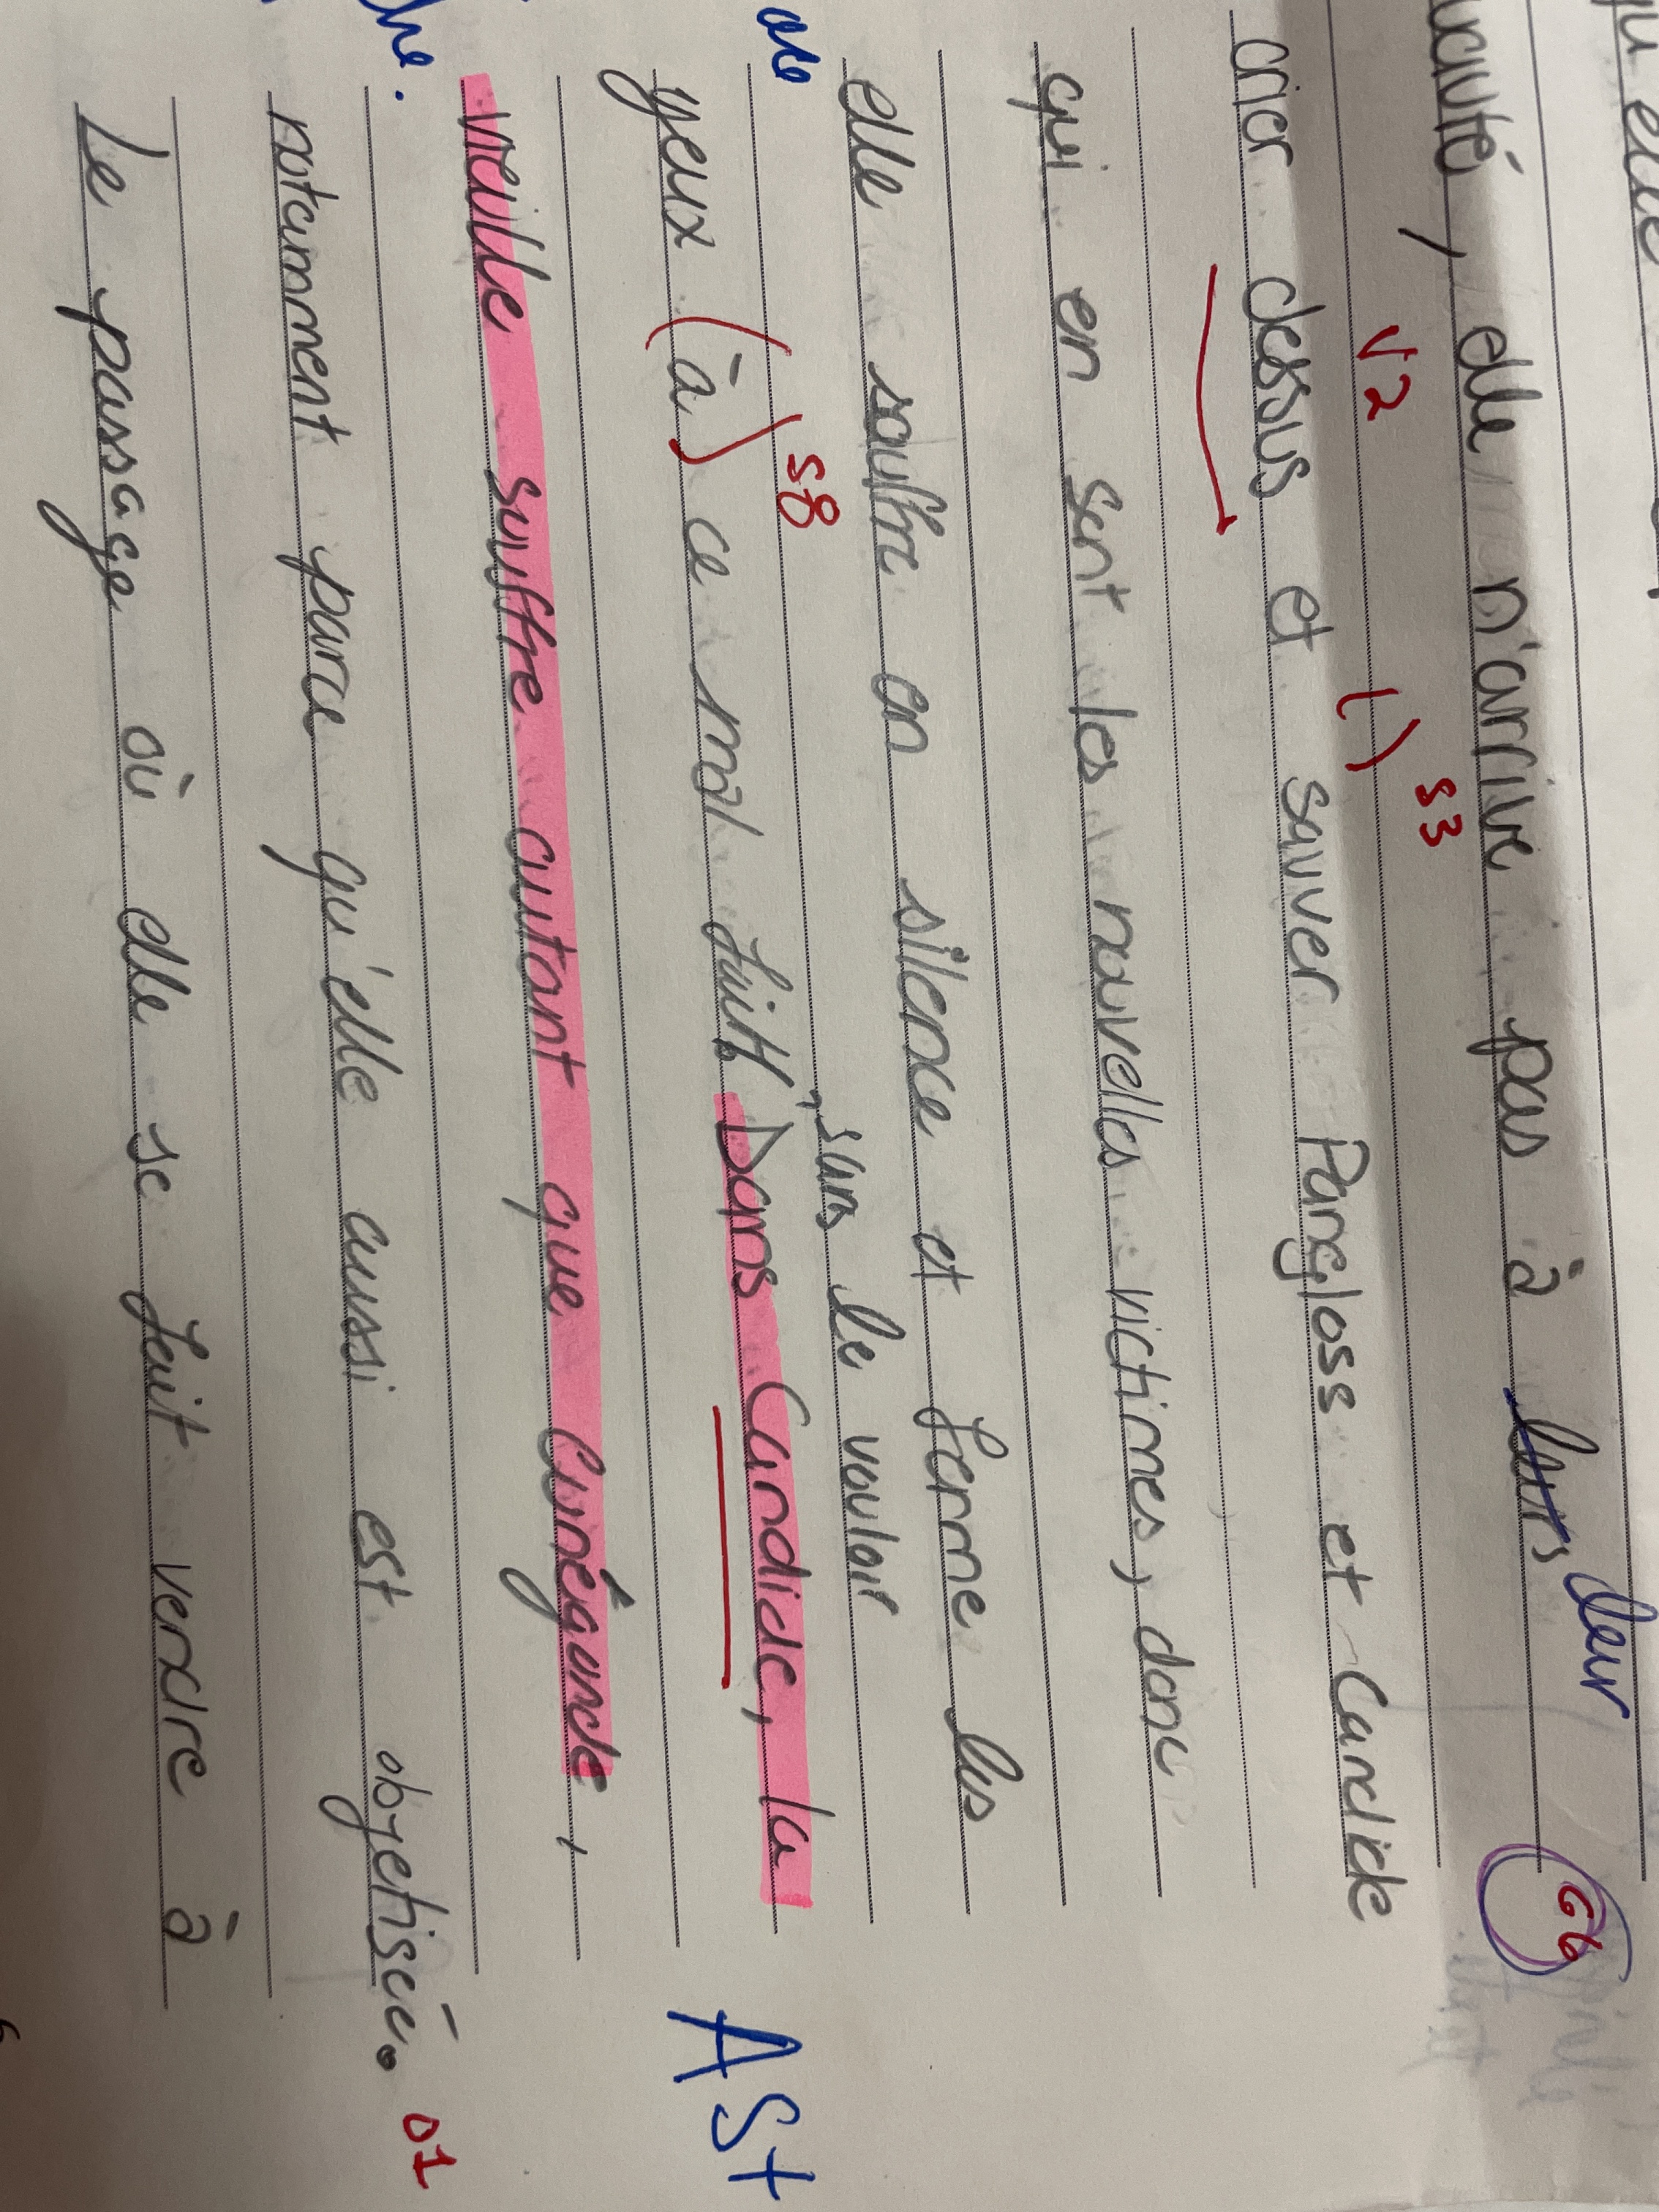 qu'elle
elle n'arrive pas à leurs leur G6
V2 ( ) S3
crier dessus et sauver Pangloss et Candide
qui en sont les nouvelles victimes, donc
elle souffre en silence et ferme les
S8 , sans le vouloir
yeux (à) ce mal Dans Candide, la
vieille souffre autant que Cunégonde,
notamment parce qu'elle aussi est objetisée. O1
Le passage où elle se fait vendre à
ASt